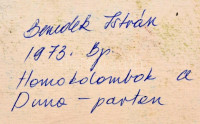 Benedek István
1973. Bp.
Homokdombok a
Duna-parton